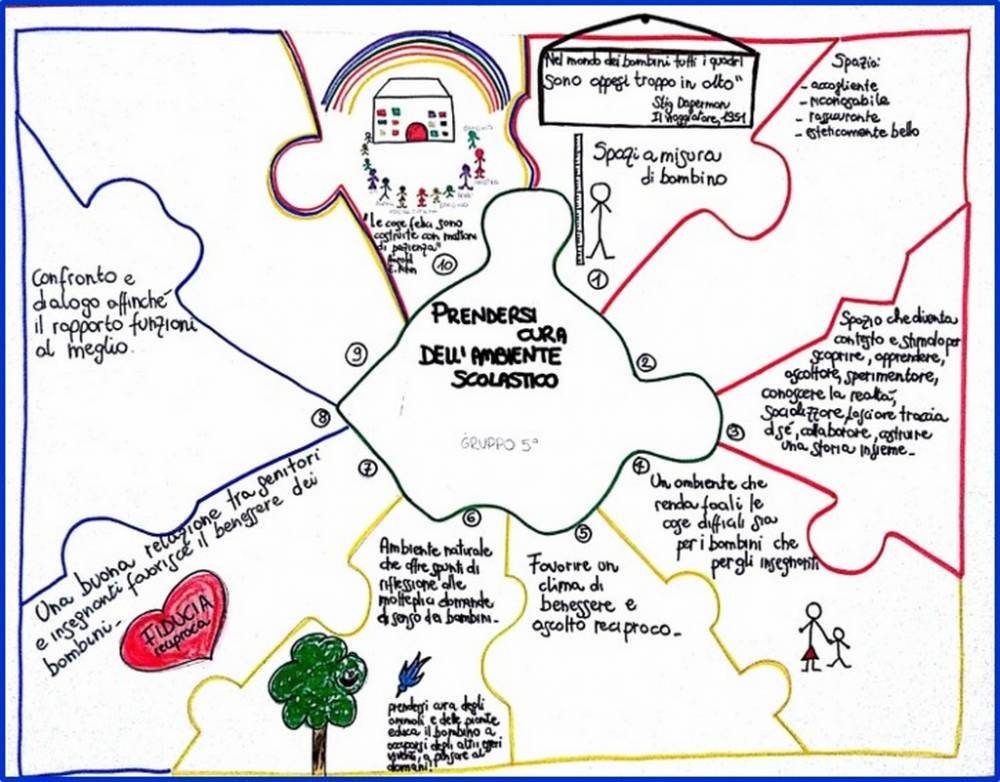 PRENDERSI
CURA
DELL'AMBIENTE
SCOLASTICO
GRUPPO 5ª
"Nel mondo dei bambini tutti i quadri
sono appesi troppo in alto"
Stig Dagerman
Il viaggiatore, 1951
Spazi a misura
di bambino
1
Spazio:
- accogliente
- riconoscibile
- rassicurante
- esteticamente bello
2
Spazio che diventa
contesto e stimolo per
scoprire, apprendere,
ascoltare, sperimentare,
conoscere la realtà,
socializzare, lasciare traccia
di sé, collaborare, costruire
una storia insieme.
3
4
Un ambiente che
renda facili le
cose difficili sia
per i bambini che
per gli insegnanti
5
Favorire un
clima di
benessere e
ascolto reciproco.
6
Ambiente naturale
che offre spunti di
riflessione alle
molteplici domande
di senso dei bambini.
prendersi cura degli
animali e delle piante
educa il bambino a
occuparsi degli altri esseri
viventi, a pensare al
domani!
7
Una buona relazione tra genitori
e insegnanti favorisce il benessere dei
bambini.
FIDUCIA
reciproca
8
Confronto e
dialogo affinché
il rapporto funzioni
al meglio.
9
"Le cose felici sono
costruite con mattoni
di pazienza"
10